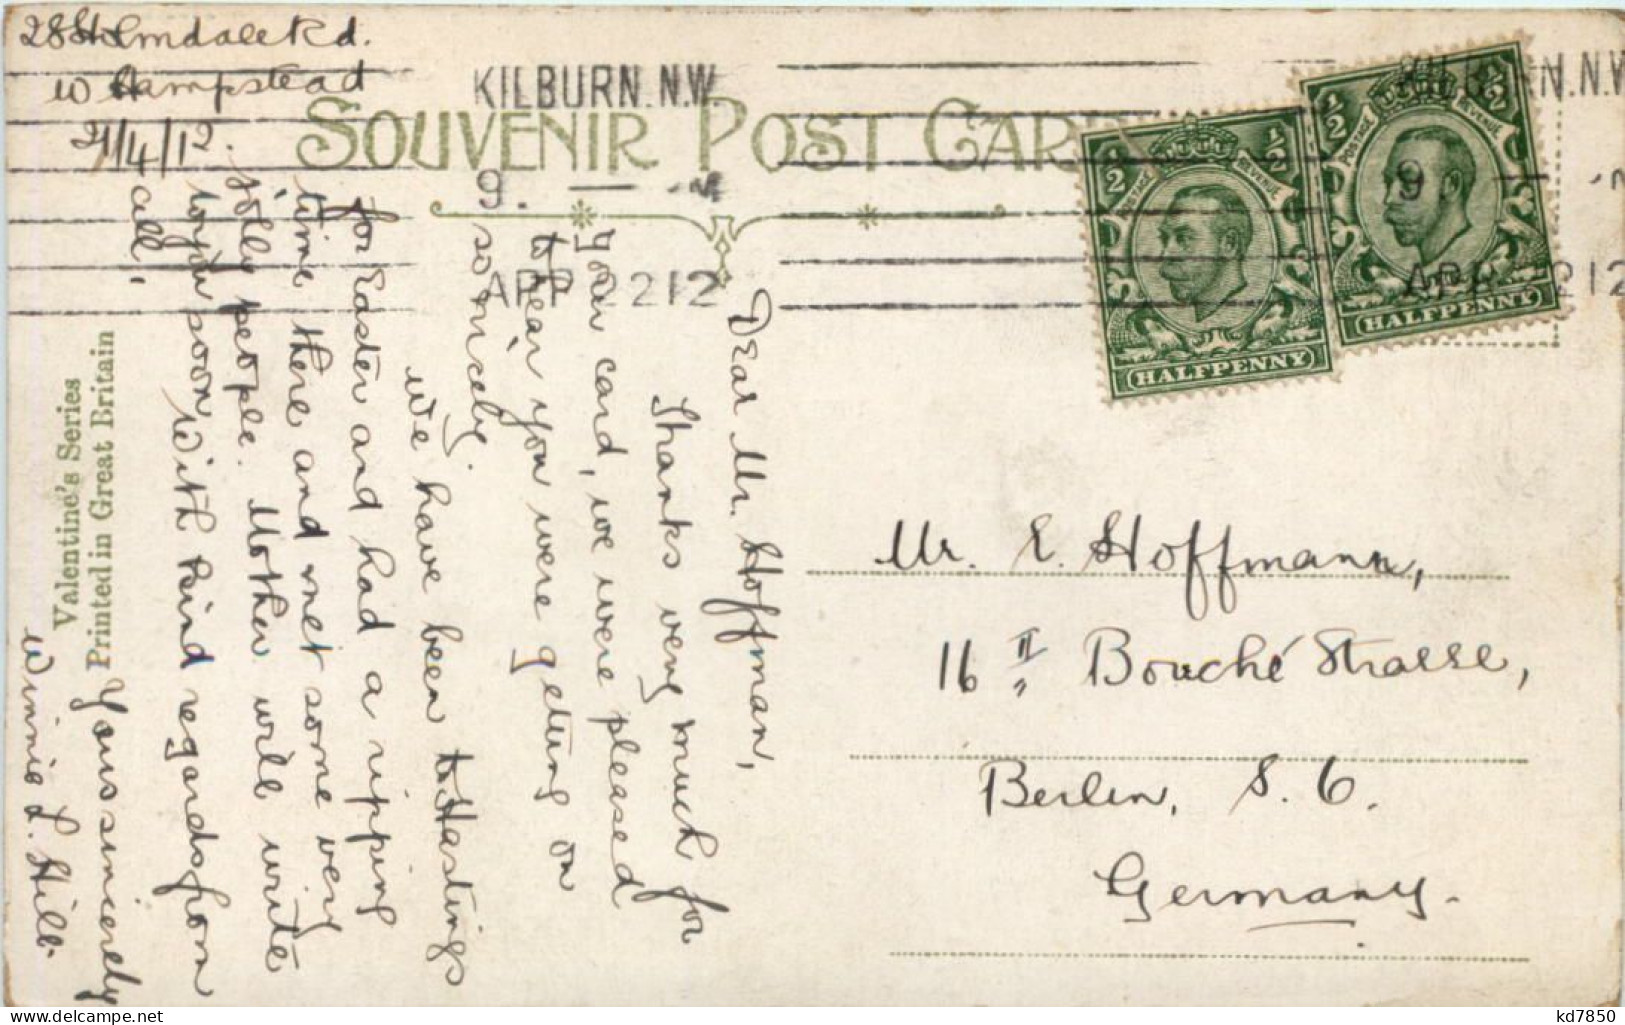 28 Holmdale Rd.
W Hampstead
21/4/12.
KILBURN. N.W.
9. — M
APR 22 12
KILBURN. N.W
9 — M
APR 22 12
SOUVENIR POST CARD
POSTAGE REVENUE
½ ½
HALFPENNY
POSTAGE REVENUE
½ ½
HALFPENNY
Dear Mr. Hoffman,
Thanks very much for
your card, we were pleased
to hear you were getting on
so nicely.
We have been to Hastings
for Easter and had a ripping
time there and met some very
jolly people. Mother will write
to you soon. With kind regards from
all.
Yours sincerely
Winnie L. Hill.
Valentine's Series
Printed in Great Britain
Mr. E. Hoffmann,
16 II Bouché Strasse,
Berlin, S. 6.
Germany.
kd7850